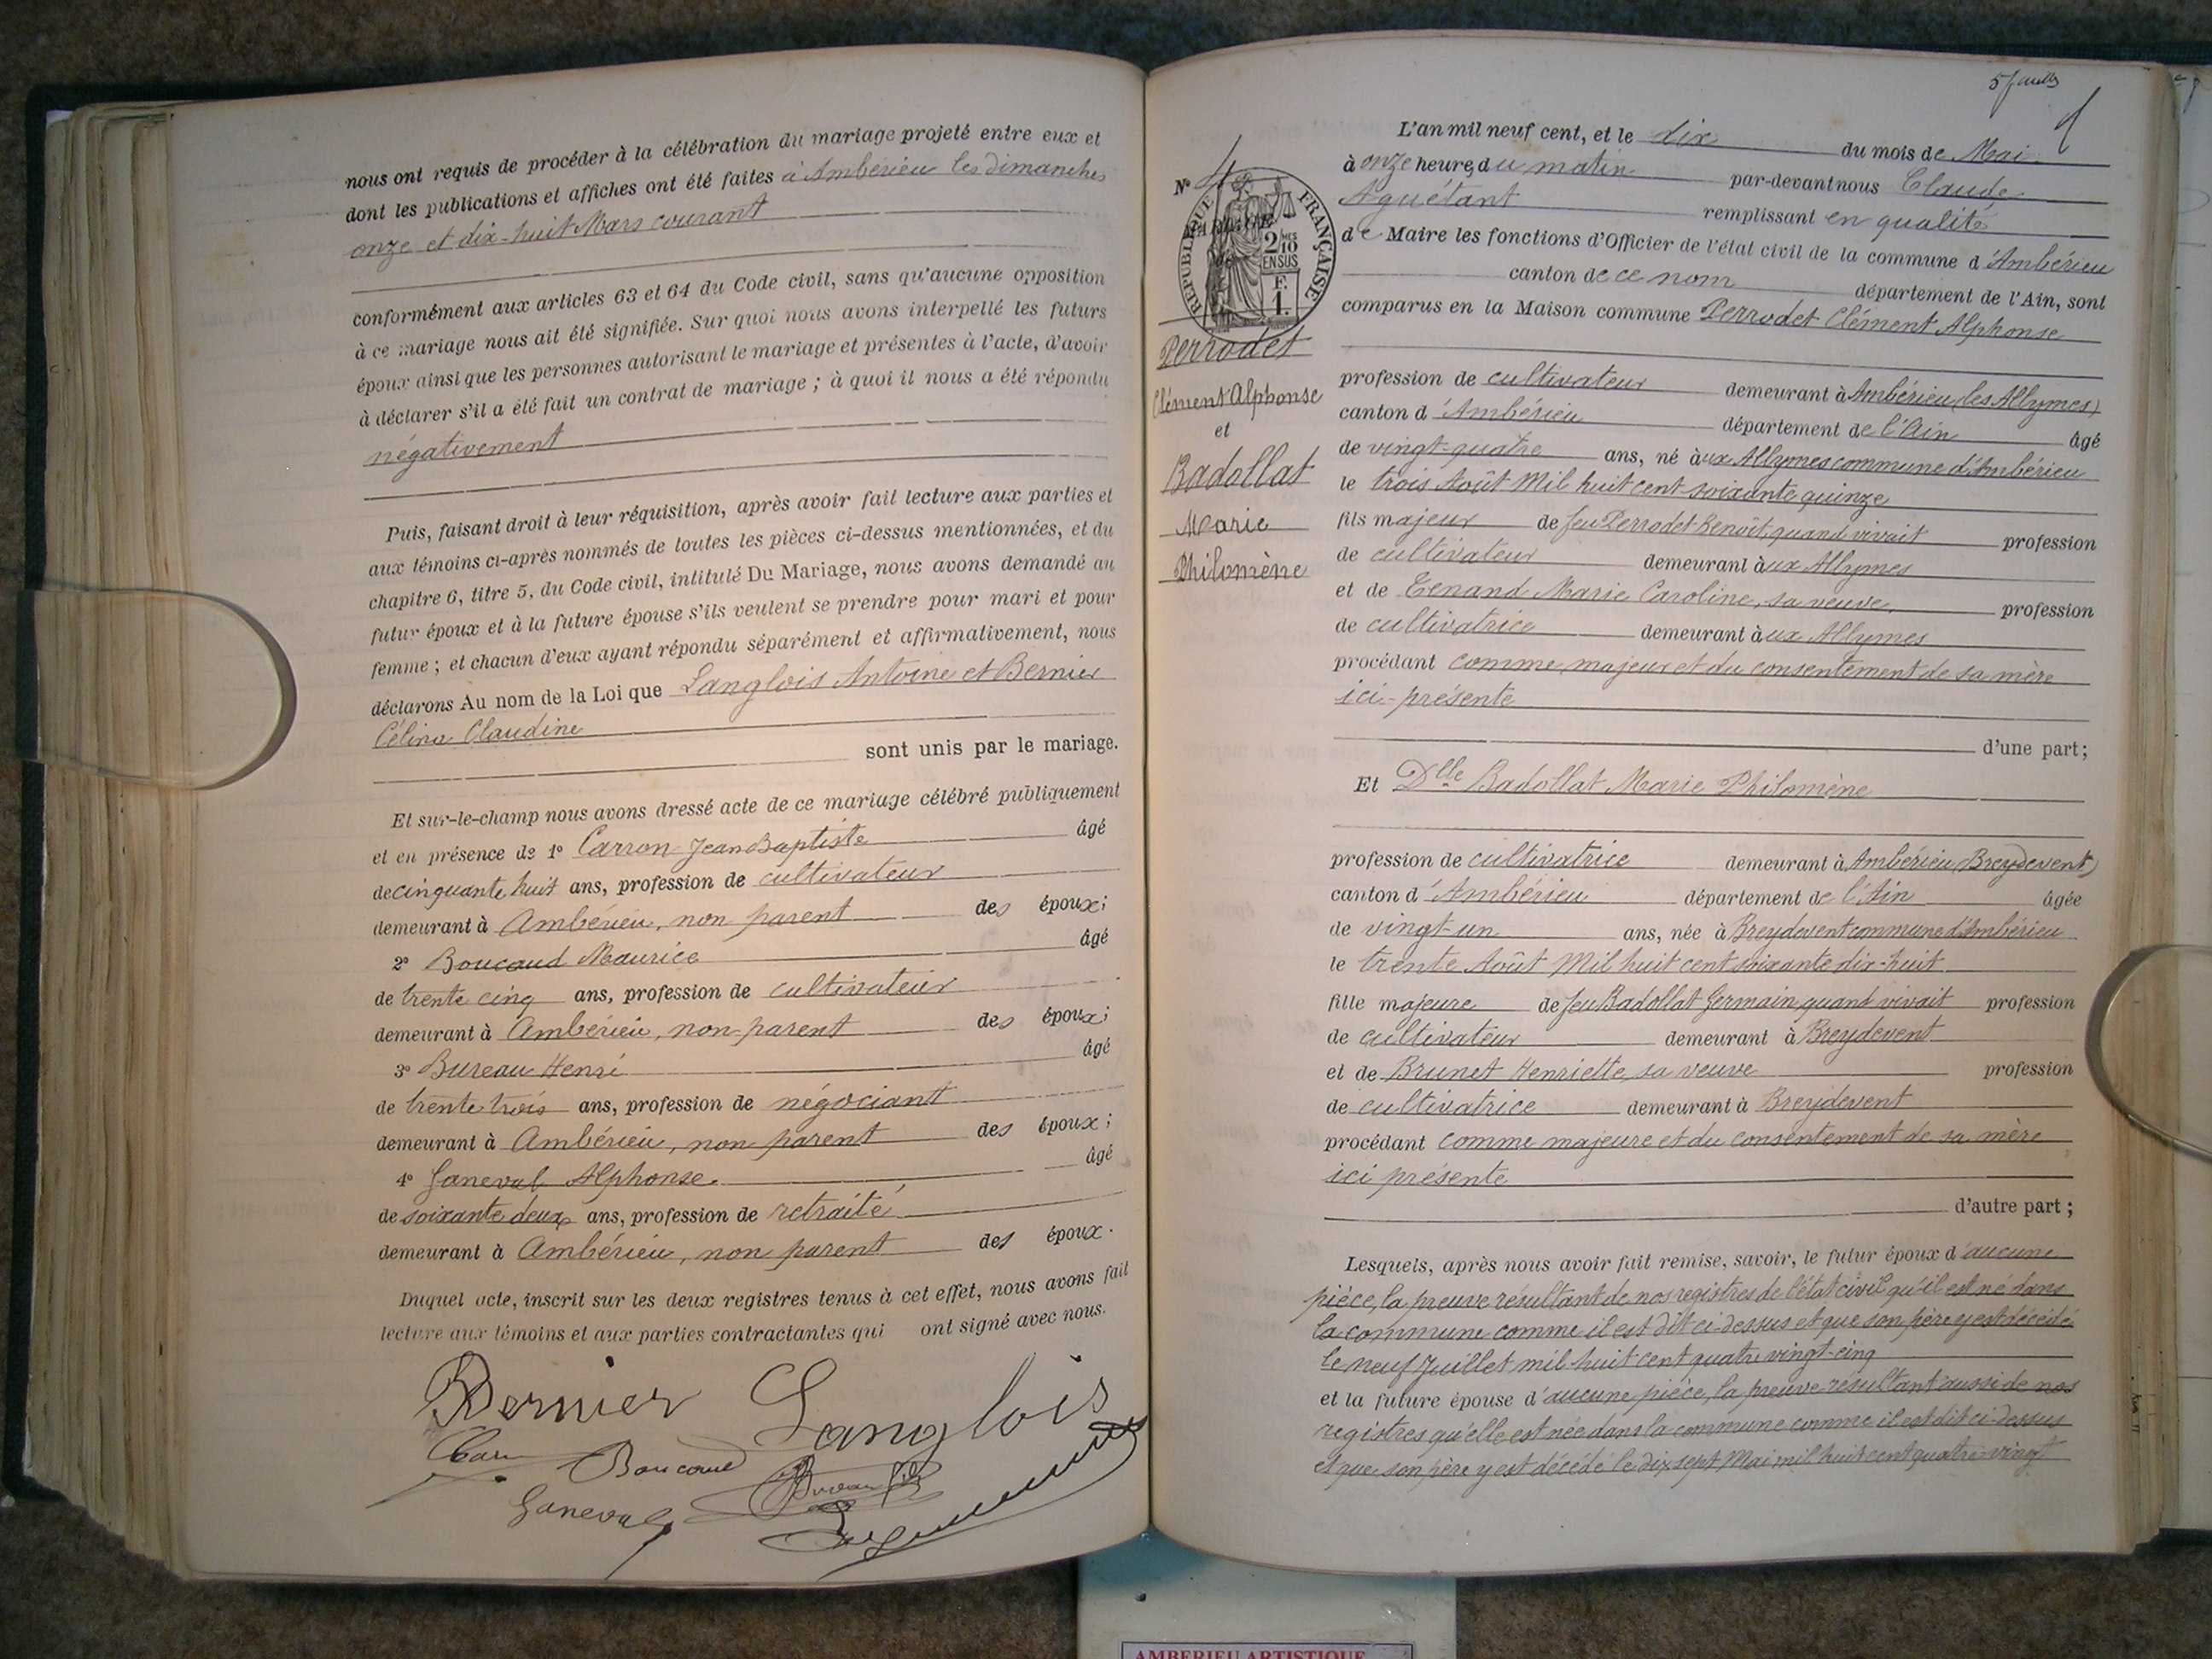 nous ont requis de procéder à la célébration du mariage projeté entre eux et
dont les publications et affiches ont été faites à Ambérieu les dimanches
onze et dix-huit Mars courant
conformément aux articles 63 et 64 du Code civil, sans qu'aucune opposition
à ce mariage nous ait été signifiée. Sur quoi nous avons interpellé les futurs
époux ainsi que les personnes autorisant le mariage et présentes à l'acte, d'avoir
à déclarer s'il a été fait un contrat de mariage ; à quoi il nous a été répondu
négativement
Puis, faisant droit à leur réquisition, après avoir fait lecture aux parties et
aux témoins ci-après nommés de toutes les pièces ci-dessus mentionnées, et du
chapitre 6, titre 5, du Code civil, intitulé Du Mariage, nous avons demandé au
futur époux et à la future épouse s'ils veulent se prendre pour mari et pour
femme ; et chacun d'eux ayant répondu séparément et affirmativement, nous
déclarons Au nom de la Loi que Langlois Antoine et Bernier
Célina Claudine
sont unis par le mariage.
Et sur-le-champ nous avons dressé acte de ce mariage célébré publiquement
et en présence de 1° Carron Jean Baptiste âgé
de cinquante huit ans, profession de cultivateur
demeurant à Ambérieu, non parent des époux ;
2° Boucaud Maurice âgé
de trente cinq ans, profession de cultivateur
demeurant à Ambérieu, non parent des époux ;
3° Bureau Henri âgé
de trente trois ans, profession de négociant
demeurant à Ambérieu, non parent des époux ;
4° Ganeval Alphonse. âgé
de soixante deux ans, profession de retraité
demeurant à Ambérieu, non parent des époux.
Duquel acte, inscrit sur les deux registres tenus à cet effet, nous avons fait
lecture aux témoins et aux parties contractantes qui ont signé avec nous.
Bernier Langlois
Boucaud
Ganeval
N° 4
MARIAGE
de
RÉPUBLIQUE FRANÇAISE
2/10
EN SUS
F.
1.
Perrodet
Clément Alphonse
et
Badollat
Marie
Philomène
L'an mil neuf cent, et le dix du mois de Mai
à onze heures du matin par-devant nous Claude
Aguétant remplissant en qualité
de Maire les fonctions d'Officier de l'état civil de la commune d'Ambérieu
canton de ce nom département de l'Ain, sont
comparus en la Maison commune Perrodet Clément Alphonse
profession de cultivateur demeurant à Ambérieu (les Allymes)
canton d'Ambérieu département de l'Ain âgé
de vingt-quatre ans, né aux Allymes commune d'Ambérieu
le trois Août Mil huit cent soixante quinze
fils majeur de feu Perrodet Benoît, quand vivait profession
de cultivateur demeurant aux Allymes
et de Tenand Marie Caroline, sa veuve, profession
de cultivatrice demeurant aux Allymes
procédant comme majeur et du consentement de sa mère
ici-présente
d'une part ;
Et Dlle Badollat Marie Philomène
profession de cultivatrice demeurant à Ambérieu (Breydevent)
canton d'Ambérieu département de l'Ain âgée
de vingt-un ans, née à Breydevent commune d'Ambérieu
le trente Août Mil huit cent soixante dix-huit
fille majeure de feu Badollat Germain quand vivait profession
de cultivateur demeurant à Breydevent
et de Brunet Henriette, sa veuve profession
de cultivatrice demeurant à Breydevent
procédant comme majeure et du consentement de sa mère
ici présente
d'autre part ;
Lesquels, après nous avoir fait remise, savoir, le futur époux d'aucune
pièce, la preuve résultant de nos registres de l'état civil qu'il est né dans
la commune comme il est dit ci-dessus et que son père y est décédé
le neuf Juillet mil huit cent quatre vingt-cinq
et la future épouse d'aucune pièce, la preuve résultant aussi de nos
registres qu'elle est née dans la commune comme il est dit ci-dessus
et que son père y est décédé le dix sept Mai mil huit cent quatre-vingt
AMBERIEU ARTISTIQUE